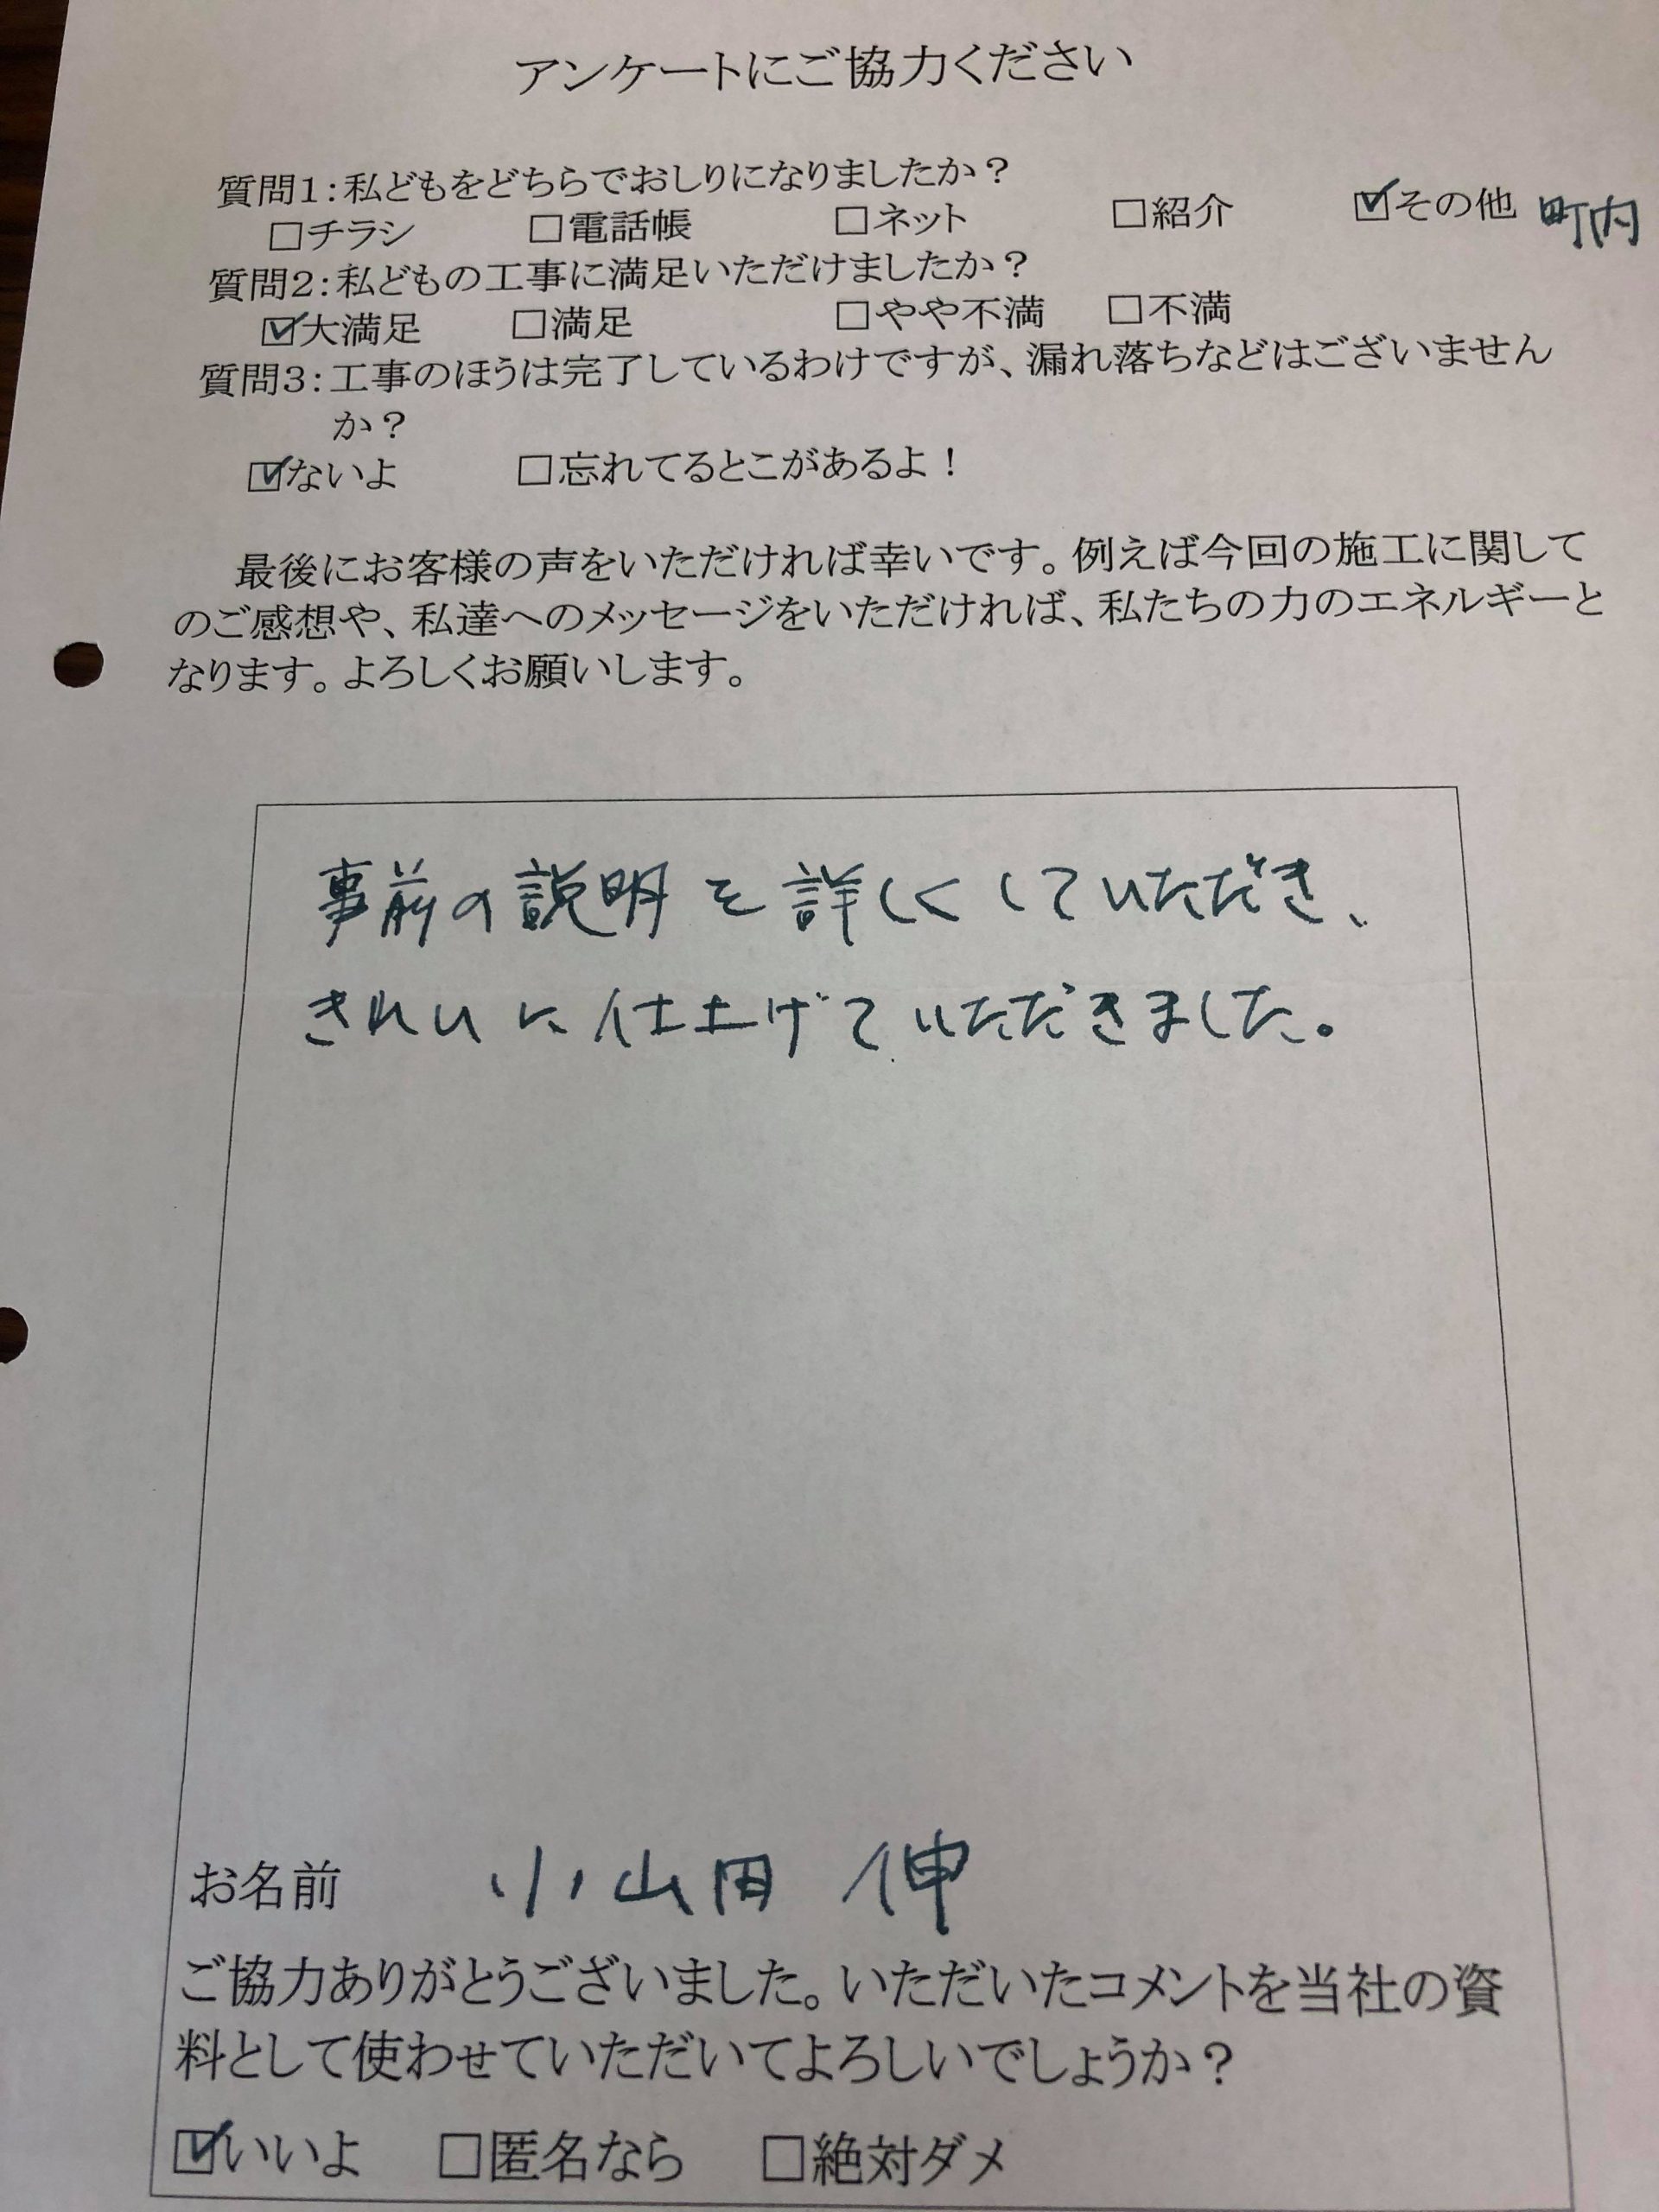 アンケートにご協力ください
質問1：私どもをどちらでおしりになりましたか？
□チラシ □電話帳 □ネット □紹介 ☑その他 町内
質問2：私どもの工事に満足いただけましたか？
☑大満足 □満足 □やや不満 □不満
質問3：工事のほうは完了しているわけですが、漏れ落ちなどはございません
か？
☑ないよ □忘れてるとこがあるよ！
最後にお客様の声をいただければ幸いです。例えば今回の施工に関して
のご感想や、私達へのメッセージをいただければ、私たちの力のエネルギーと
なります。よろしくお願いします。
事前の説明を詳しくしていただき、
きれいに仕上げていただきました。
お名前 小山田 伸
ご協力ありがとうございました。いただいたコメントを当社の資
料として使わせていただいてよろしいでしょうか？
☑いいよ □匿名なら □絶対ダメ